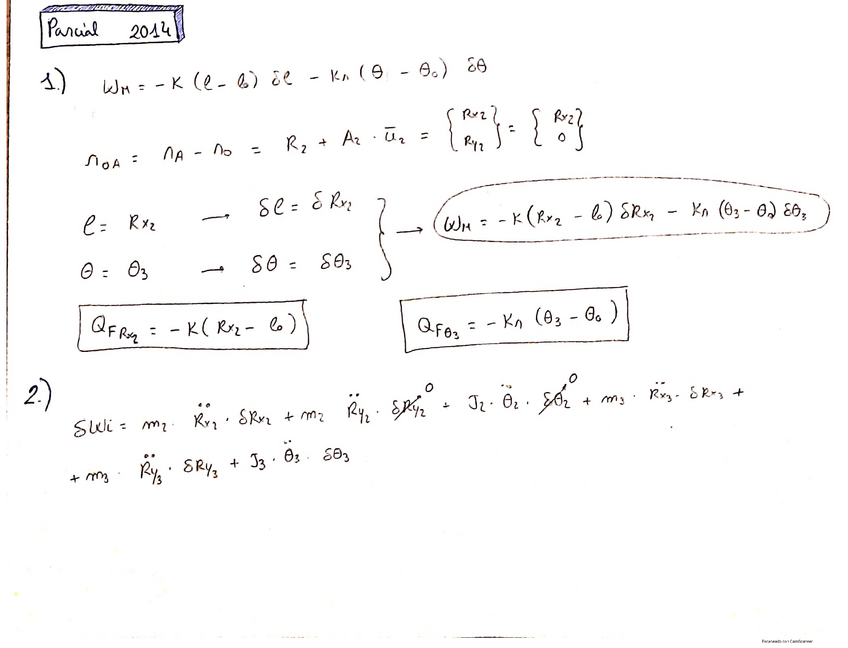 Parcial 2014
1.) W_M = -K (l - l₀) δl - K_r (θ - θ₀) δθ
r_OA = r_A - r_O = R₂ + A₂ · ū₂ = {Rx₂ Ry₂} = {Rx₂ 0}
l = Rx₂ → δl = δRx₂
θ = θ₃ → δθ = δθ₃
} → W_M = -K (Rx₂ - l₀) δRx₂ - K_r (θ₃ - θ₀) δθ₃
Q_F Rx₂ = -K (Rx₂ - l₀)
Q_F θ₃ = -K_r (θ₃ - θ₀)
2.) δWi = m₂ · R̈x₂ · δRx₂ + m₂ R̈y₂ · δRy₂ 0 + J₂ · θ̈₂ · δθ₂ 0 + m₃ · R̈x₃ · δRx₃ +
+ m₃ · R̈y₃ · δRy₃ + J₃ · θ̈₃ · δθ₃
Escaneado con CamScanner